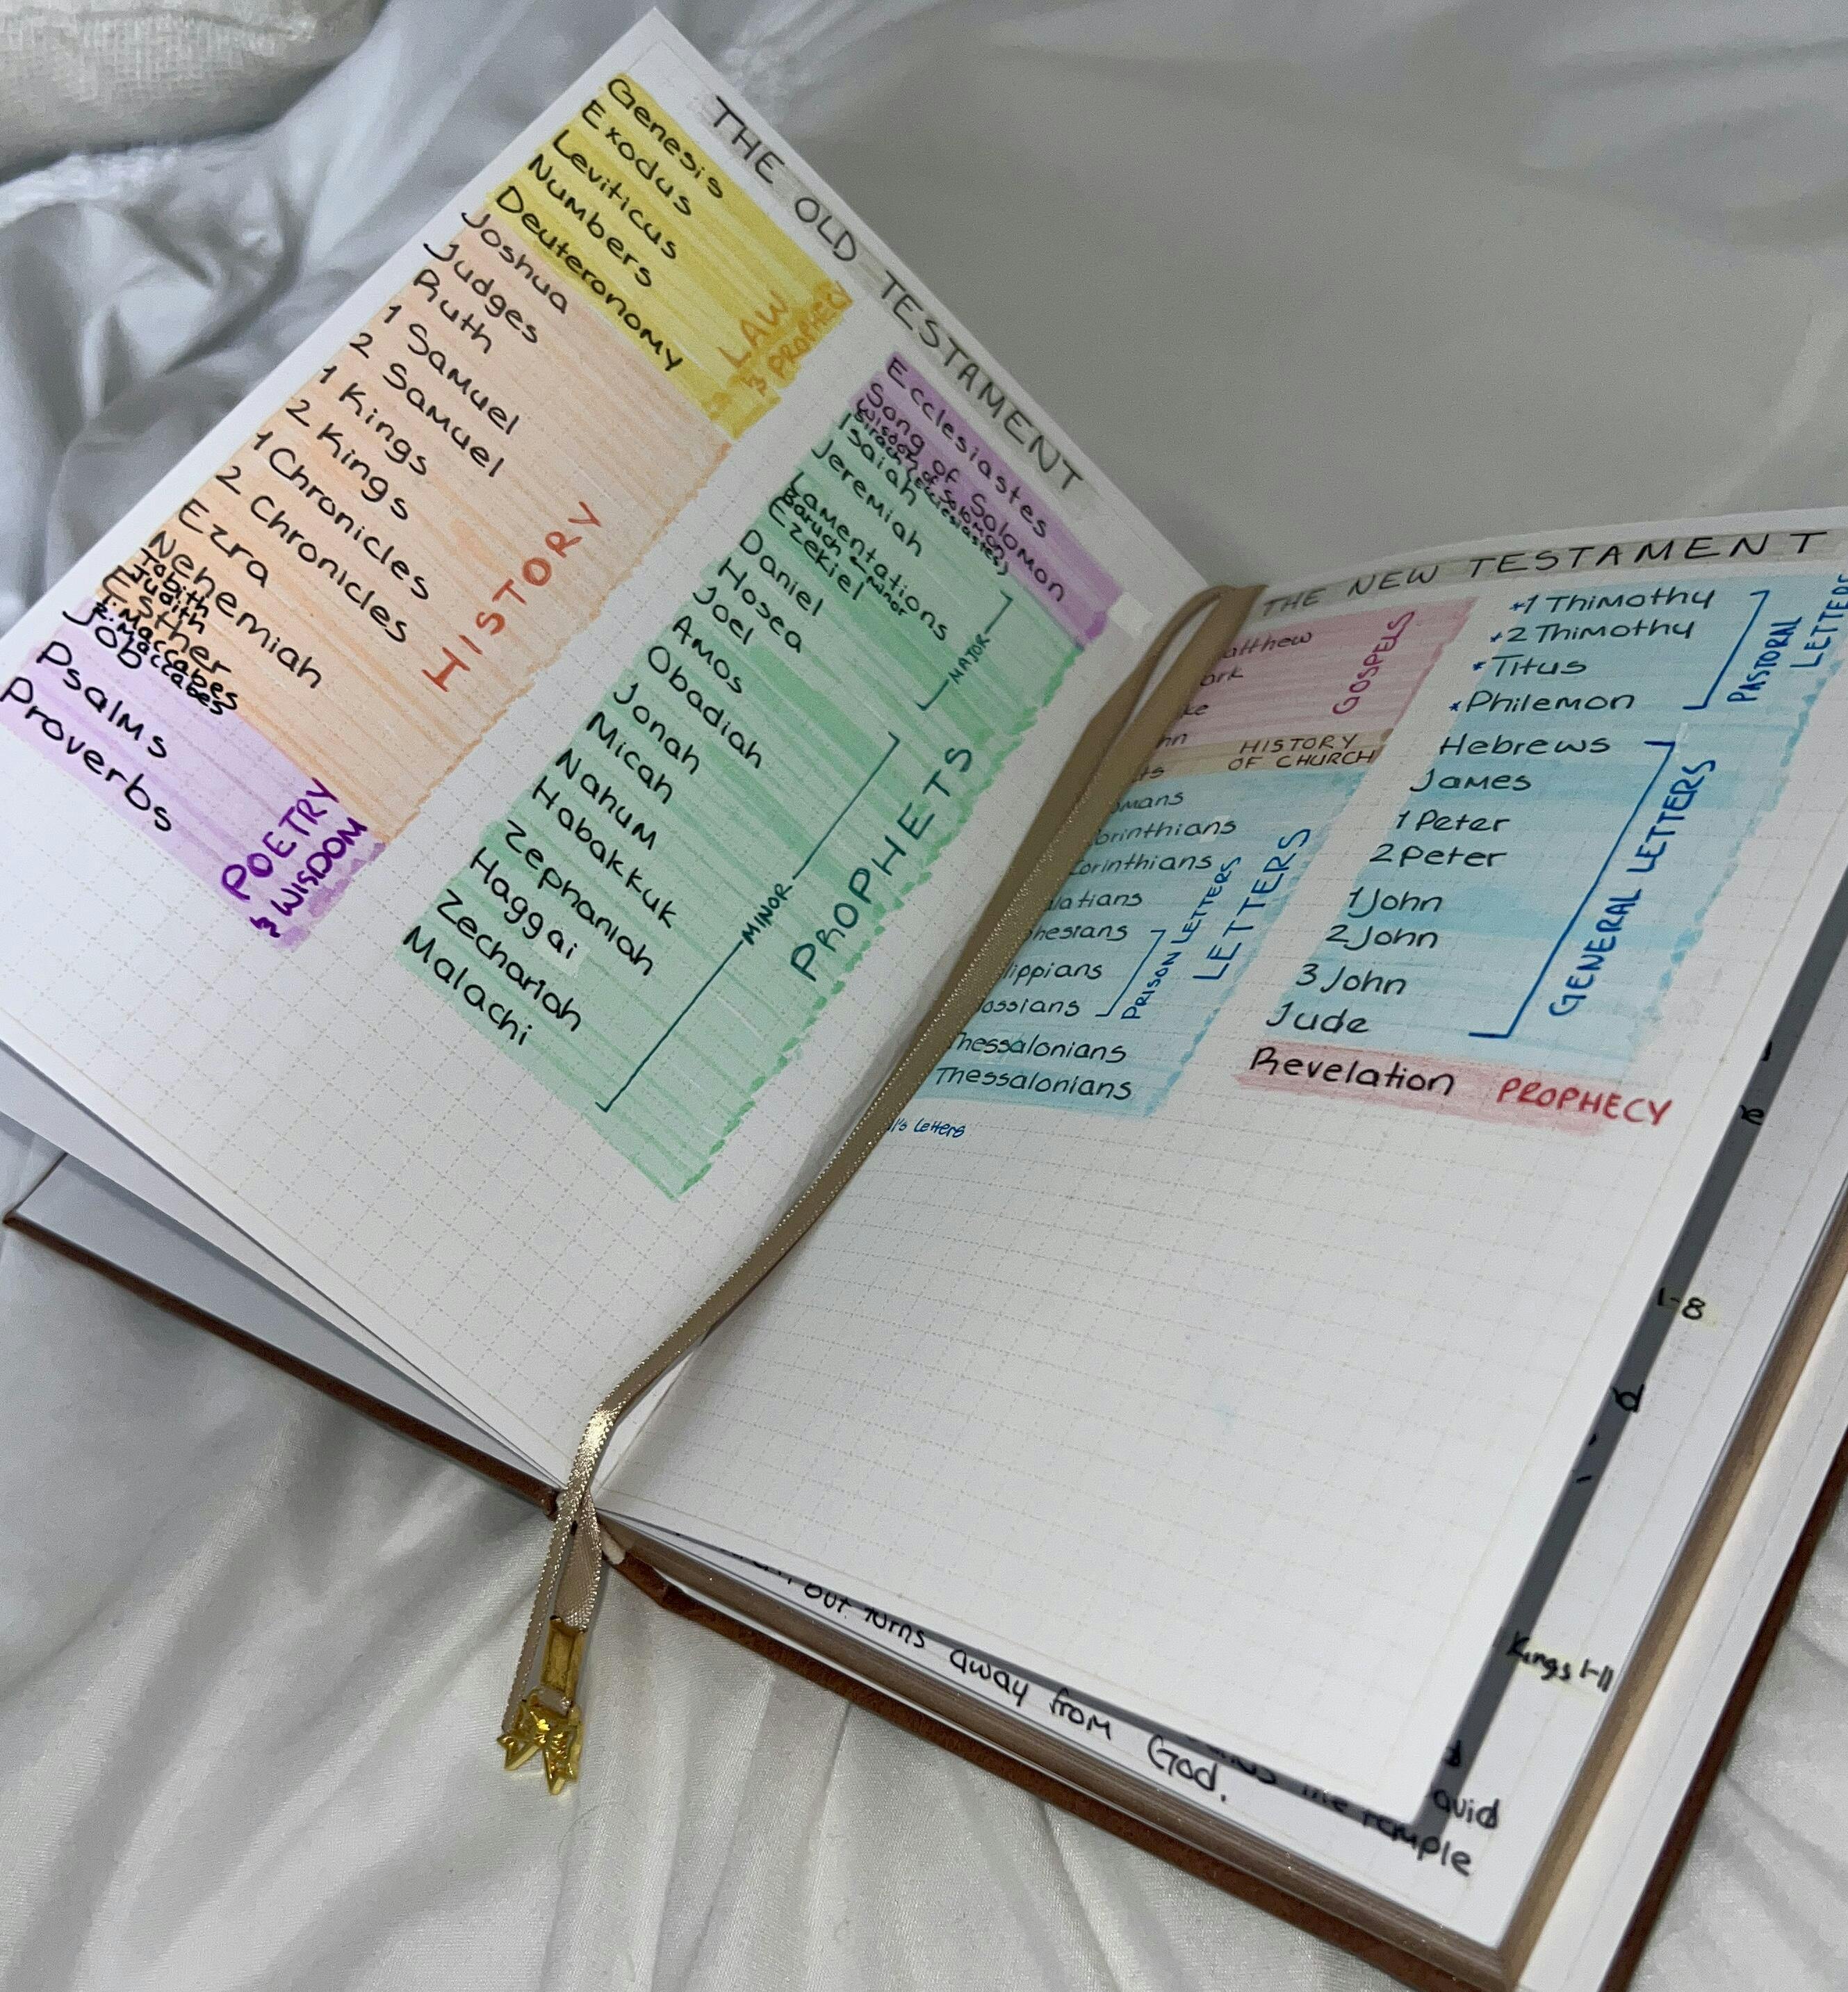 THE OLD TESTAMENT
Genesis
Exodus
Leviticus
Numbers
Deuteronomy
LAW
& PROPHECY
Joshua
Judges
Ruth
1 Samuel
2 Samuel
1 Kings
2 Kings
1 Chronicles
2 Chronicles
Ezra
Nehemiah
Tobith
Judith
Esther
1. Maccabes
2. Maccabes
HISTORY
Job
Psalms
Proverbs
POETRY
& WISDOM
Ecclesiastes
Song of Solomon
Wisdom of Solomon
Sirach (Ecclesiastes)
Isaiah
Jeremiah
Lamentations
Baruch
Ezekiel
Daniel
MAJOR
Hosea
Joel
Amos
Obadiah
Jonah
Micah
Nahum
Habakkuk
Zephaniah
Haggai
Zechariah
Malachi
MINOR
PROPHETS
THE NEW TESTAMENT
atthew
ark
ke
hn
GOSPELS
ts
HISTORY
OF CHURCH
omans
orinthians
Corinthians
latians
hesians
lippians
ossians
PRISON LETTERS
LETTERS
Thessalonians
Thessalonians
l's Letters
*1 Thimothy
*2 Thimothy
*Titus
*Philemon
PASTORAL
LETTERS
Hebrews
James
1 Peter
2 Peter
1 John
2 John
3 John
Jude
GENERAL LETTERS
Revelation PROPHECY
e
1-8
d
Kings 1-11
d
avid
the temple
but turns away from God.